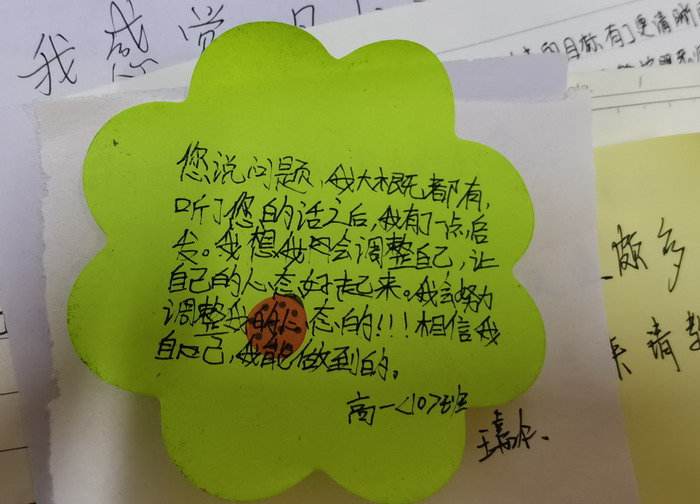 我感觉
和目标有了更清晰
您说问题,我大概都有,
听了您的话之后,我有了一点启
发。我想我会调整自己,让
自己的心态好起来。我会努力
调整我的心态的!!!相信我
自己,我能做到的。
高一<10>班
颇多
来请教